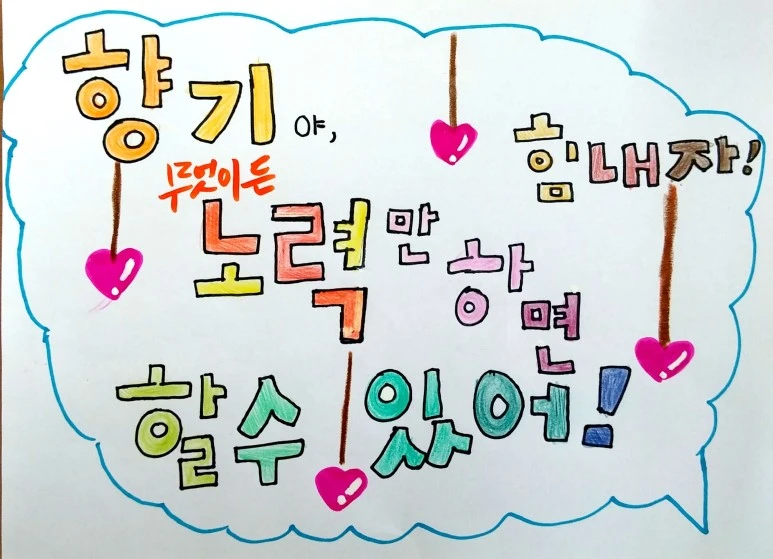 향기야,
힘내자!
무엇이든
노력만 하면
할수 있어!